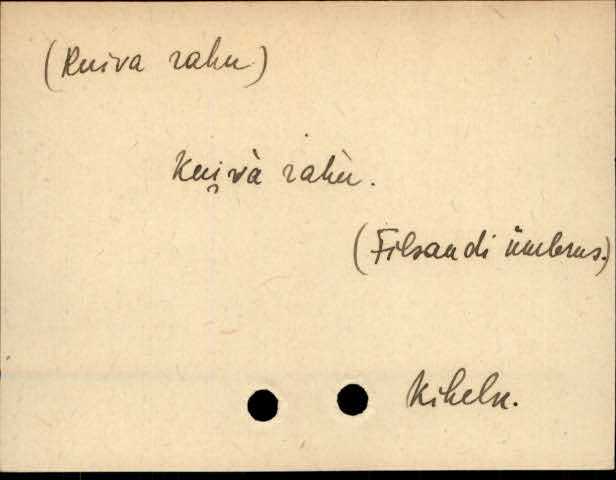 (Kuiva rahu)
Kui̮và rahù.
(Filsandi ümbrus.)
Kihelk.